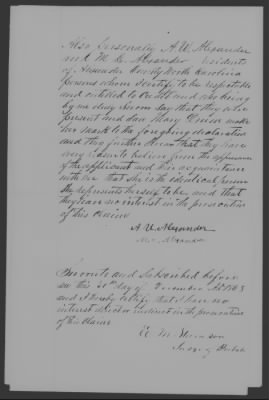 Also Personally A. W. Alexander
and M. L. Alexander residents
of Alexander County North Carolina
persons whom I certify to be respectable
and entitled to credit and who being
by me duly sworn say that they were
present and saw Mary make
her mark to the foregoing declaration
and they further swear that they have
every reason to believe from the appearance
of the applicant and their acquaintance
with her that she is the identical person
she represents herself to be and that
they have no interest in the prosecution
of this claim
A. W. Alexander
Alexander
Sworn to and Subscribed before
me this day of December
and I hereby certify that I have no
interest direct or indirect in the prosecution
of this claim
E. M.
Judge of Probate